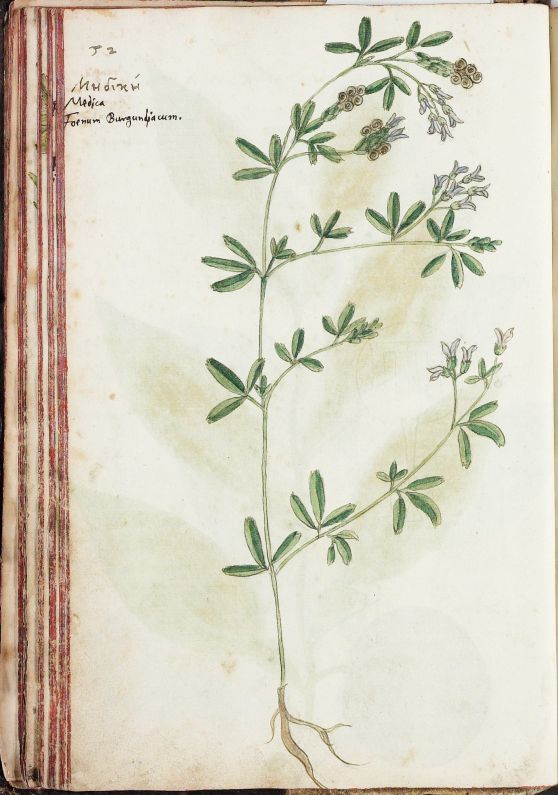 52
Μηδική
Medica
Foenum Burgundiacum.